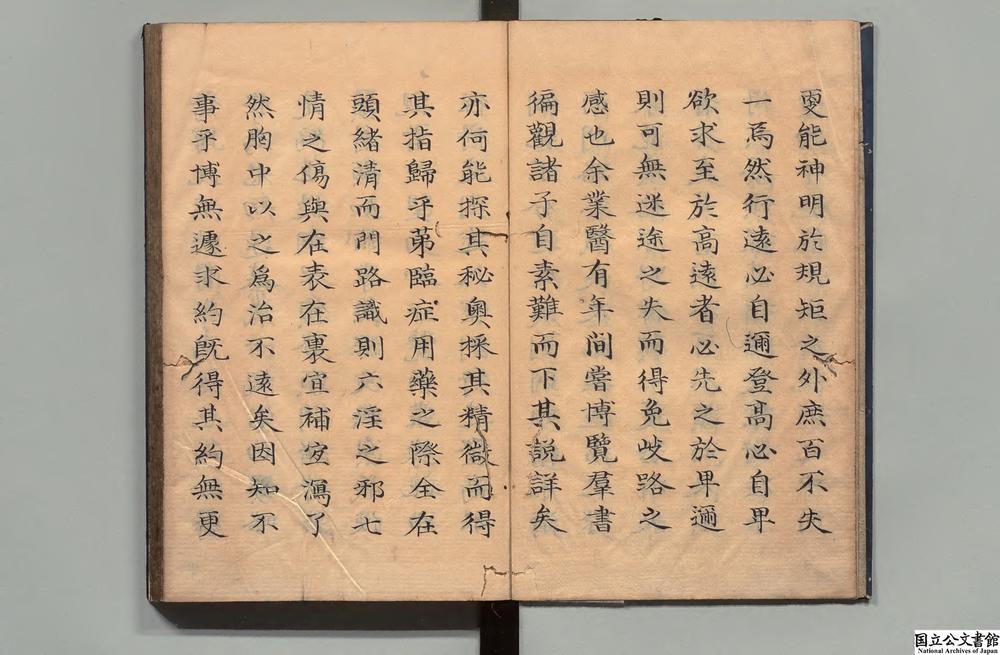 更能神明於規矩之外庶百不失
一焉然行遠必自邇登高必自卑
欲求至於高遠者必先之於卑邇
則可無迷途之失而得免岐路之
感也余業醫有年间嘗博覽羣書
徧觀諸子自素難而下其説詳矣
亦何能探其秘奥採其精微而得
其指歸乎苐臨症用藥之際全在
頭緒清而門路識則六淫之邪七
情之傷與在表在裏宜補宜瀉了
然胸中以之爲治不遠矣因知不
事乎博無遽求約既得其約無更
国立公文書館
National Archives of Japan